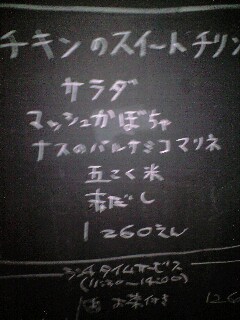 チキンのスイートチリソ
サラダ
マッシュかぼちゃ
ナスのバルサミコマリネ
五こく米
赤だし
1260えん
ランチタイムサービス
(11:30〜14:00)
お茶付き